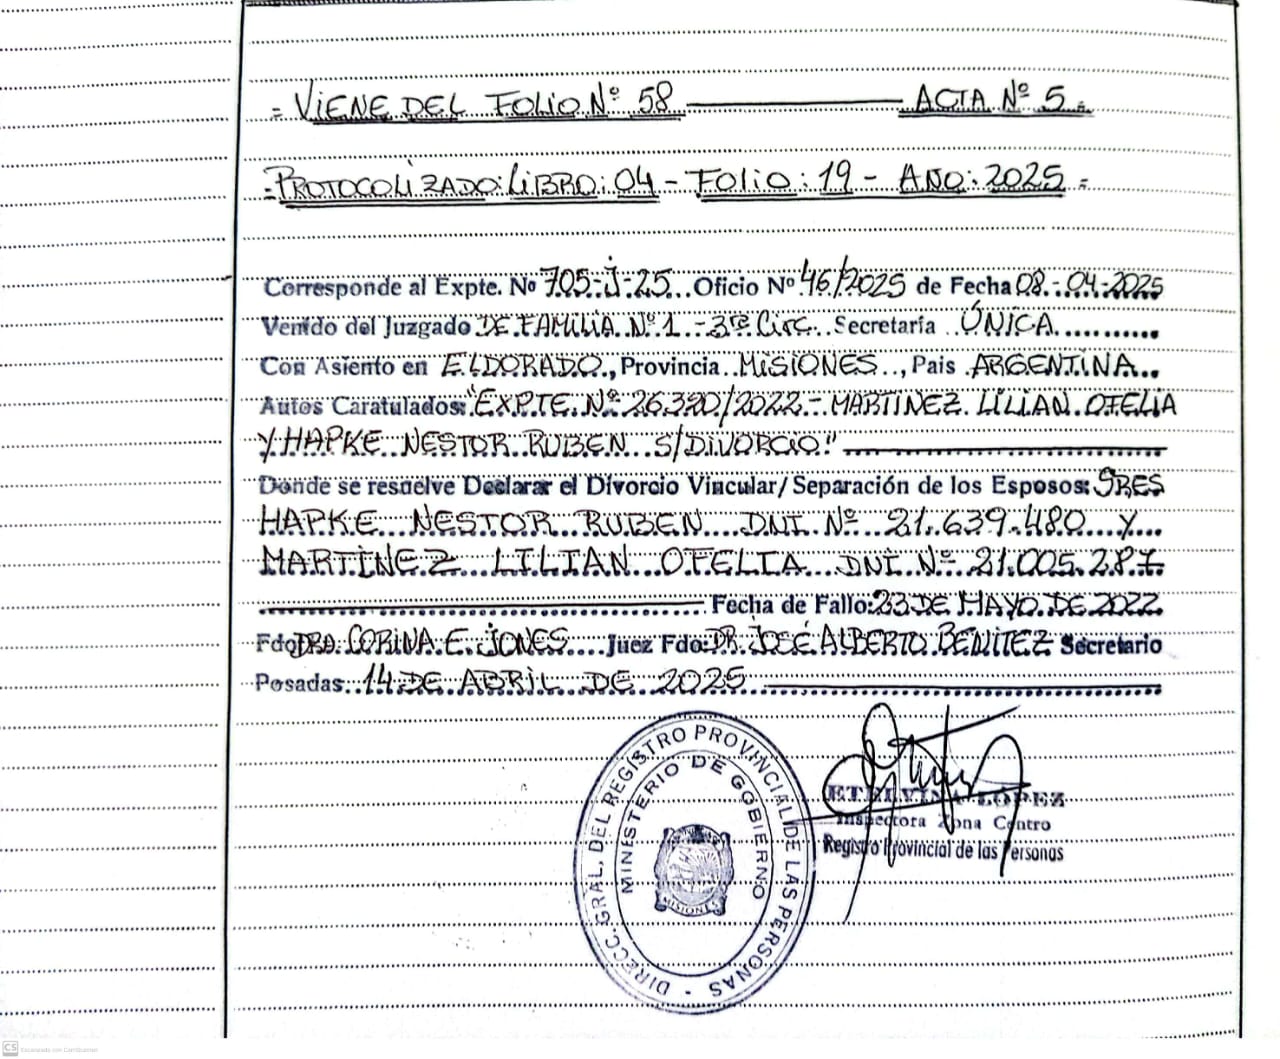 = VIENE DEL FOLIO Nº 58 ———— ACTA Nº 5 =
=PROTOCOLIZADO: LIBRO: 04 - FOLIO: 19 - AÑO: 2025 =
Corresponde al Expte. Nº 705-J-25 Oficio Nº 46/2025 de Fecha 08-04-2025
Venido del Juzgado DE FAMILIA Nº 1 - 3ra Circ. Secretaría ÚNICA
Con Asiento en ELDORADO, Provincia MISIONES, Pais ARGENTINA
Autos Caratulados: "EXPTE. Nº 26.320/2022 - MARTINEZ LILIAN OFELIA
Y HAPKE NESTOR RUBEN S/DIVORCIO"
Donde se resuelve Declarar el Divorcio Vincular/Separación de los Esposos: SRES
HAPKE NESTOR RUBEN DNI Nº 21.639.480 Y
MARTÍNEZ LILIAN OFELIA DNI Nº 21.005.287
Fecha de Fallo: 23 DE MAYO DE 2022
Fdo DRA. CORINA E. JONES Juez Fdo: DR. JOSÉ ALBERTO BENÍTEZ Secretario
Posadas 14 DE ABRIL DE 2025
DIRECC. GRAL. DEL REGISTRO PROVINCIAL DE LAS PERSONAS -
MINISTERIO DE GOBIERNO
MISIONES
ETELVINA LOPEZ
Inspectora Zona Centro
Registro Provincial de las Personas
CS Escaneado con CamScanner